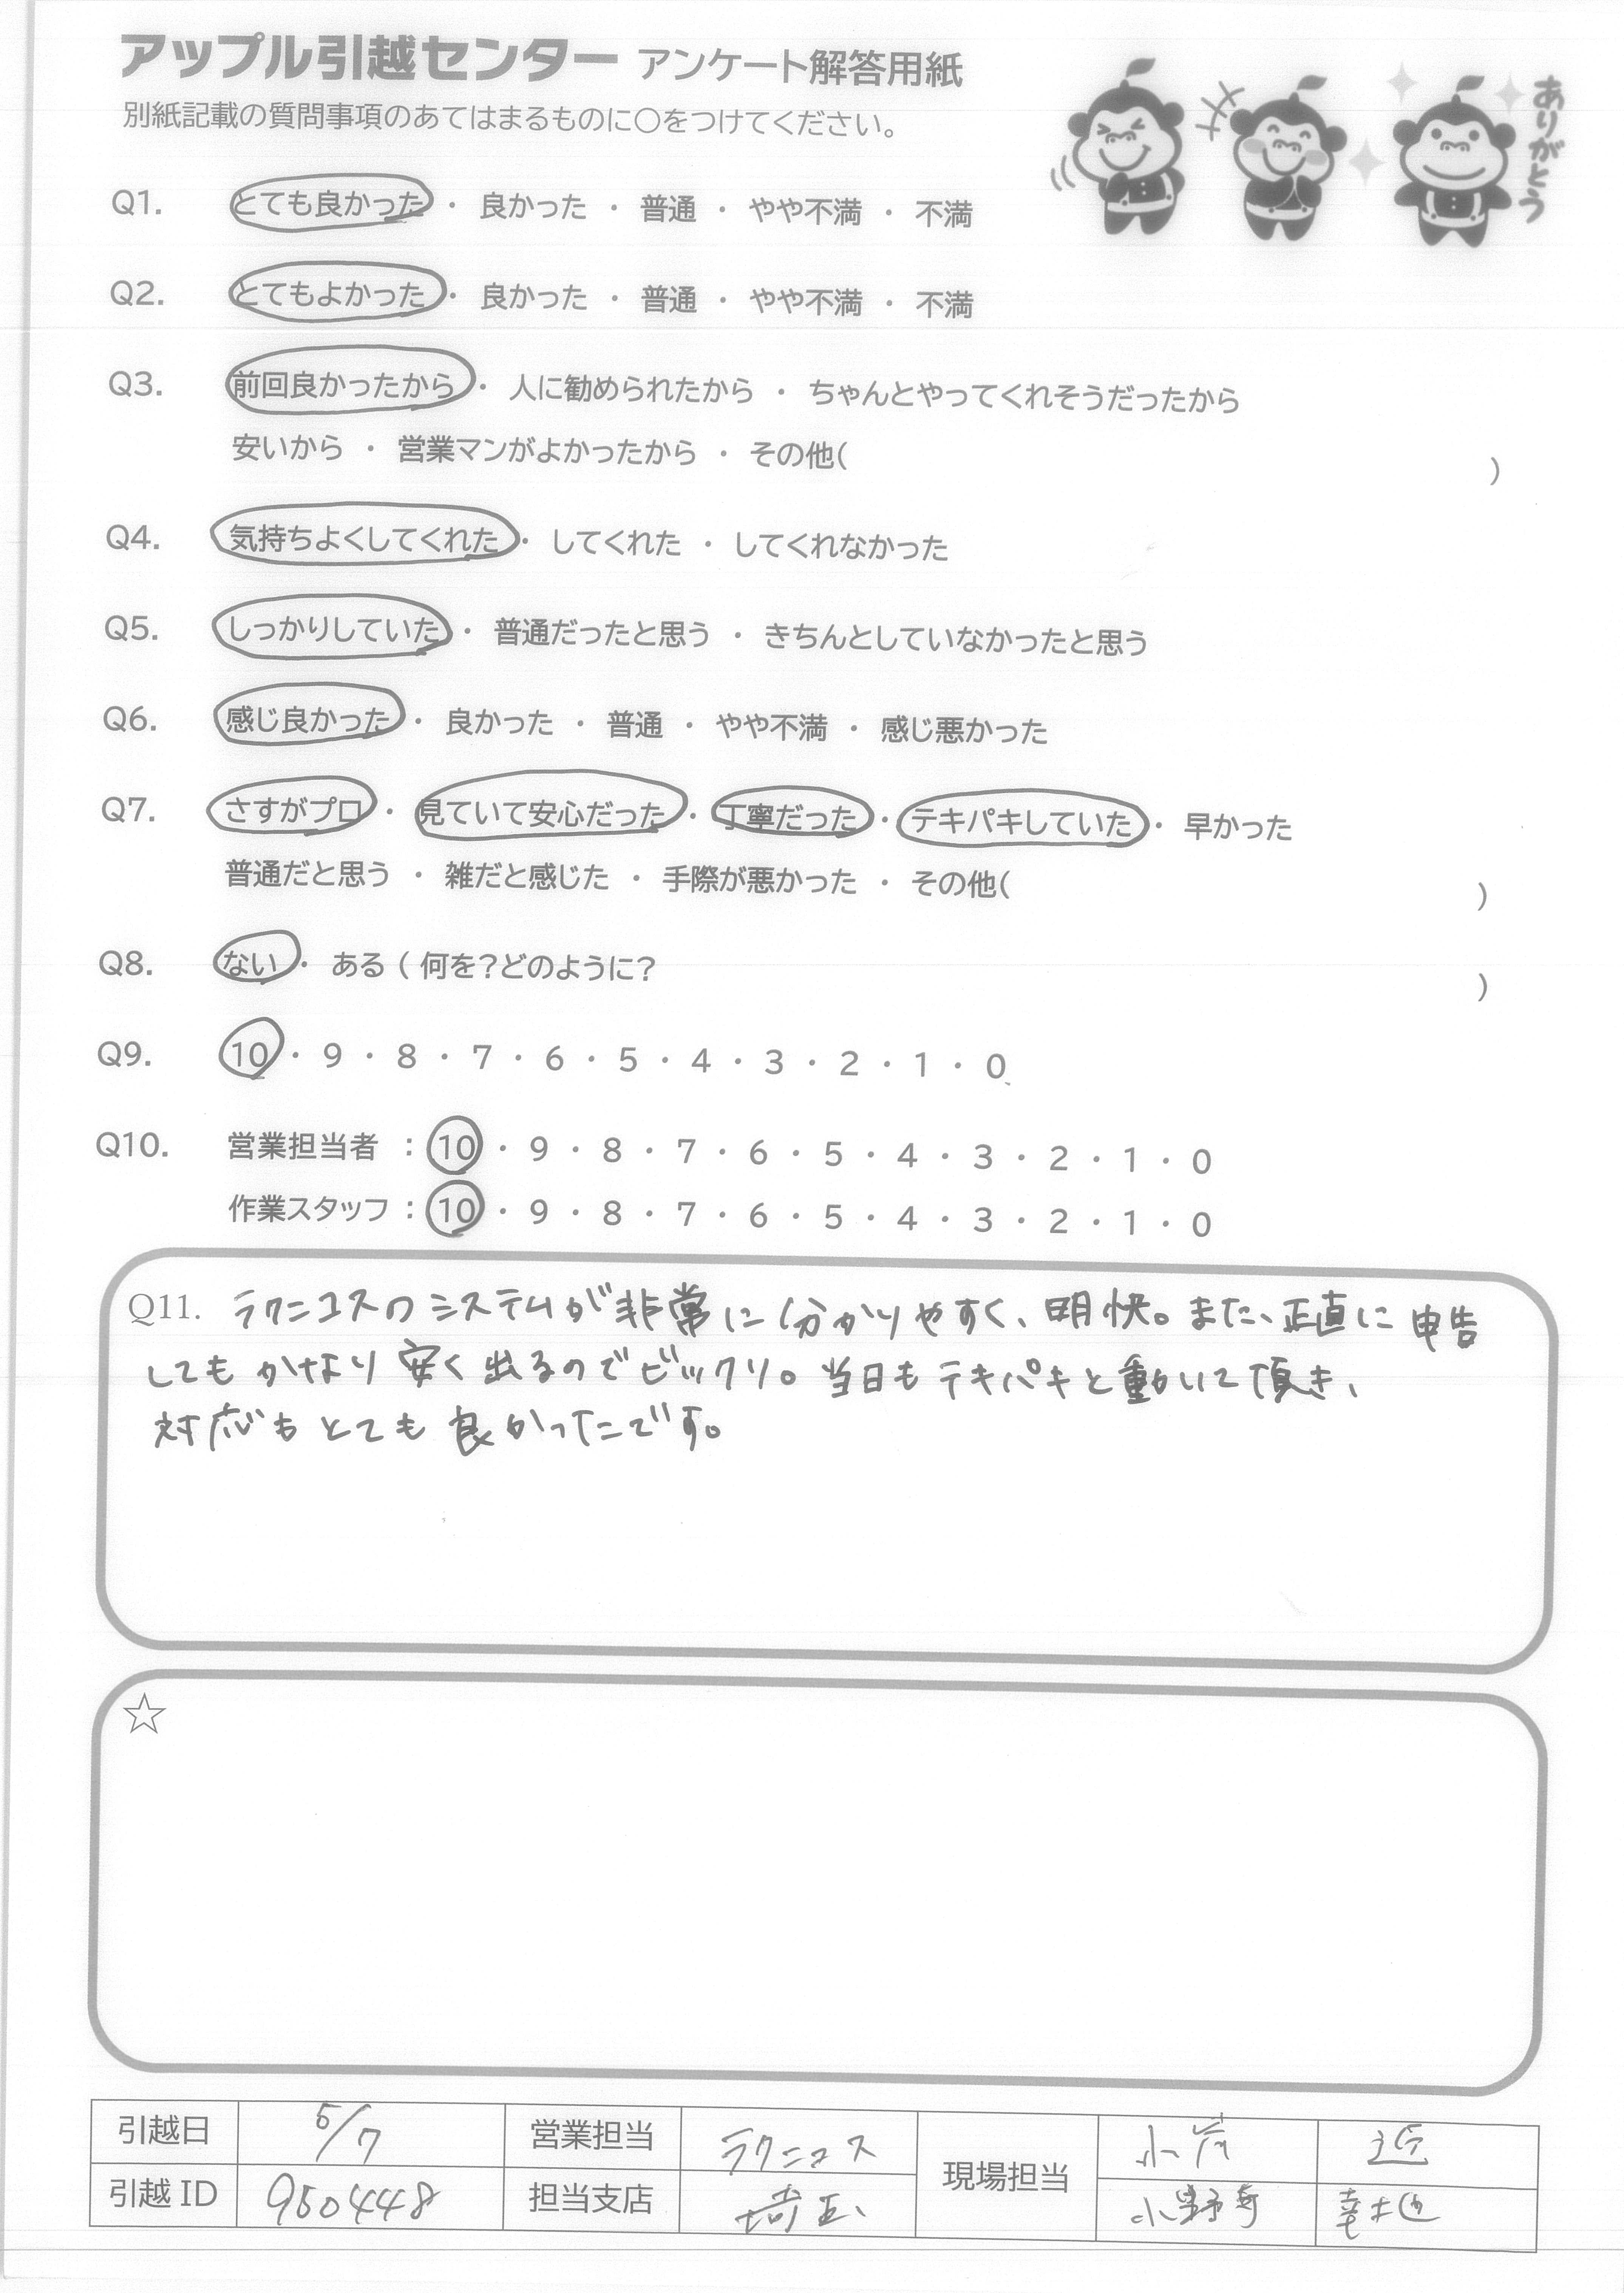 アップル引越センター アンケート解答用紙
別紙記載の質問事項のあてはまるものに〇をつけてください。
ありがとう
Q1. とても良かった ・ 良かった ・ 普通 ・ やや不満 ・ 不満
Q2. とてもよかった ・ 良かった ・ 普通 ・ やや不満 ・ 不満
Q3. 前回良かったから ・ 人に勧められたから ・ ちゃんとやってくれそうだったから
安いから ・ 営業マンがよかったから ・ その他( )
Q4. 気持ちよくしてくれた ・ してくれた ・ してくれなかった
Q5. しっかりしていた ・ 普通だったと思う ・ きちんとしていなかったと思う
Q6. 感じ良かった ・ 良かった ・ 普通 ・ やや不満 ・ 感じ悪かった
Q7. さすがプロ ・ 見ていて安心だった ・ 丁寧だった ・ テキパキしていた ・ 早かった
普通だと思う ・ 雑だと感じた ・ 手際が悪かった ・ その他( )
Q8. ない ・ ある ( 何を?どのように? )
Q9. 10 ・ 9 ・ 8 ・ 7 ・ 6 ・ 5 ・ 4 ・ 3 ・ 2 ・ 1 ・ 0
Q10. 営業担当者 : 10 ・ 9 ・ 8 ・ 7 ・ 6 ・ 5 ・ 4 ・ 3 ・ 2 ・ 1 ・ 0
作業スタッフ : 10 ・ 9 ・ 8 ・ 7 ・ 6 ・ 5 ・ 4 ・ 3 ・ 2 ・ 1 ・ 0
Q11. ラクニコスのシステムが非常に分かりやすく、明快。また、正直に申告
してもかなり安く出るのでビックリ。当日もテキパキと動いて頂き、
対応もとても良かったです。
☆
引越日 5/7 営業担当 ラクニコス 現場担当 小岸 近
引越ID 950448 担当支店 埼玉 小野寺